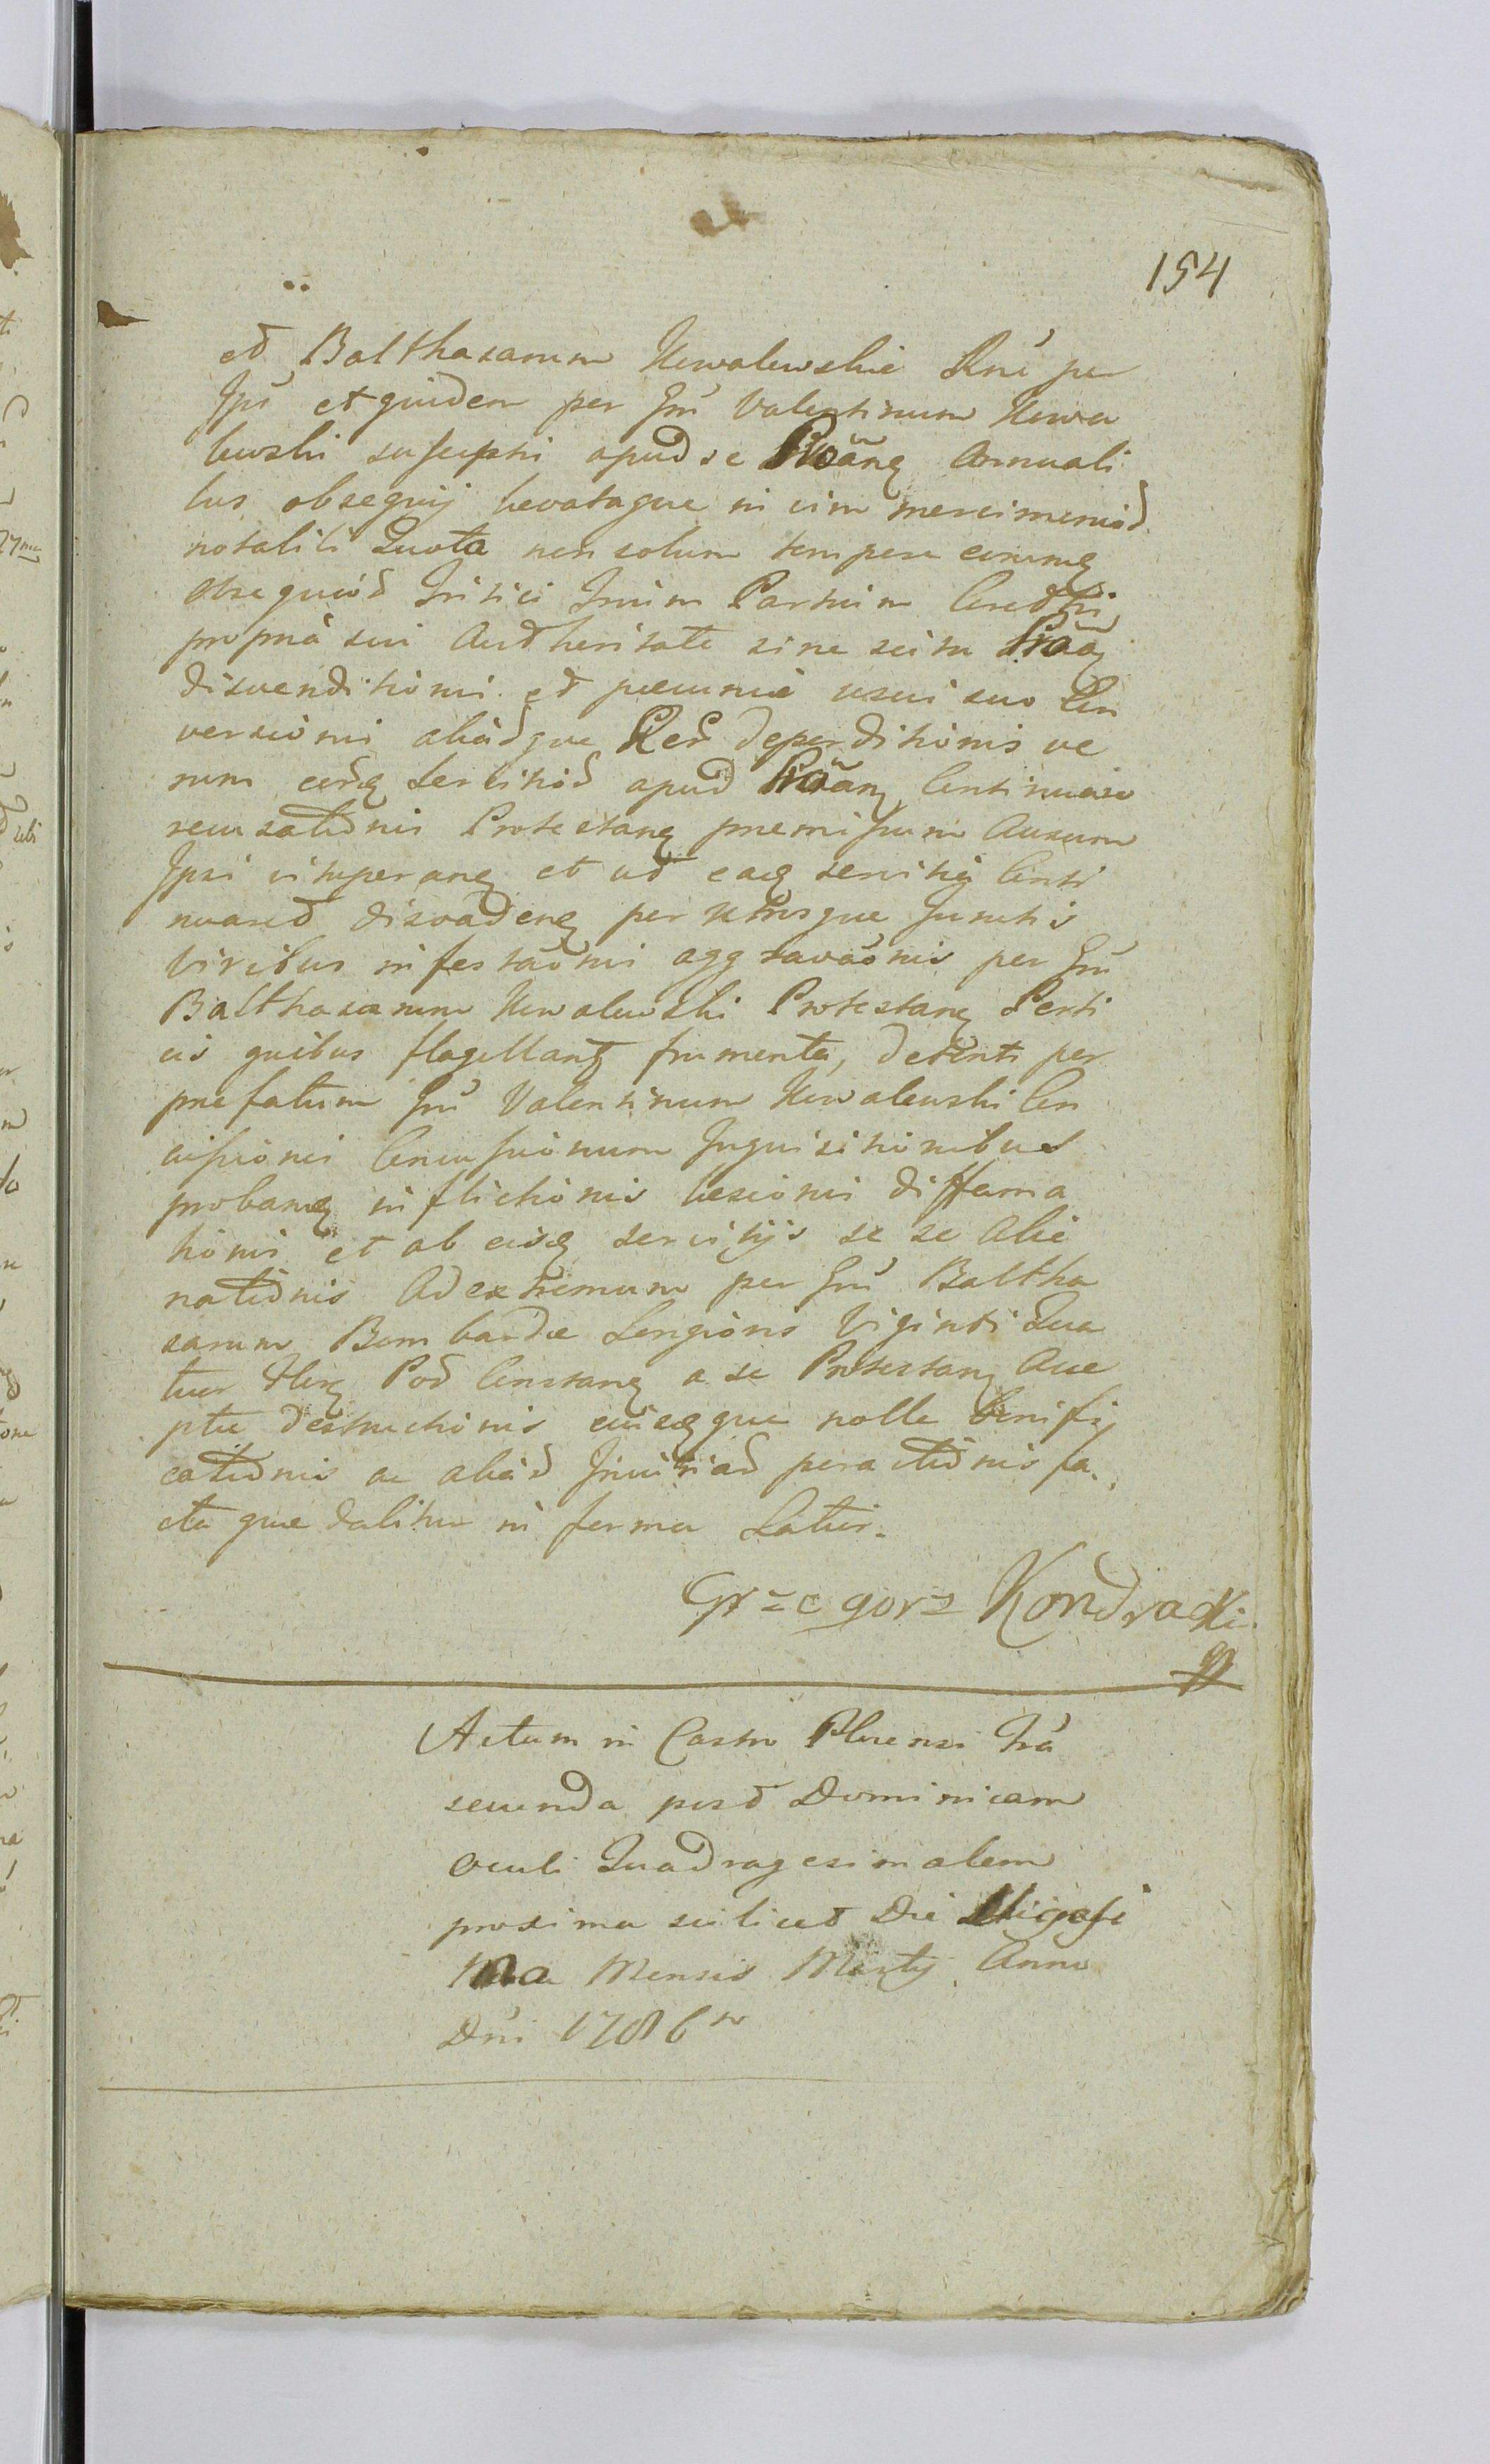 154
et Balthasarum Kowalewskie Rnē per
Ipū et quidem per Grū Valentinum Kowa
lewski suscepti apud se annuali
bus obsequij levataque in vim mercimoniōd
notabili Quota non solum tempore eorumq
obsequiōd Tritici Trium Partium
propriā sui Authoritate sine scitu
disvenditionis et pecuniē usui suo Con
versionis aliādque Rer deperditionis ve
rum eodq Servitiōd apud Continuare
recusatiōnis Protestanq premissum Ausum
Ipsi vituperanq et ud eaq servitij Conti
nuared disvadenq per Utrosque Iunctis
Viribus infestaōnis aggravaōnis per Grū
Balthasarum Kowalewski Protestanq Perti
cis quibus flagellantq frumenta, detenti per
prefatum Grū Valentinum Kowalewski Con
cissionis Concussionum Inquisitionibus
probanq inflictionis lesionis diffama
tionis et ab eisq servitijs se se Alie
natiōnis Ad extremum per Grū Baltha
sarum Bombardæ Longioris Viginti Qua
tuor flerq Pol Constanq a se Protestanq Acce
ptæ destructionis eiusqque nolle bonifi
catiōnis ac aliād Iniuriad peractiōnis fa
cta que dabitur in forma Latior.
Grzegorz Kondracki
Actum in Castro Plocensi Frā
secunda post Dominicam
Oculi Quadragesimalem
proxima scilicet Die Vigesi
ma Mensis Martij Anno
Dni 1786to